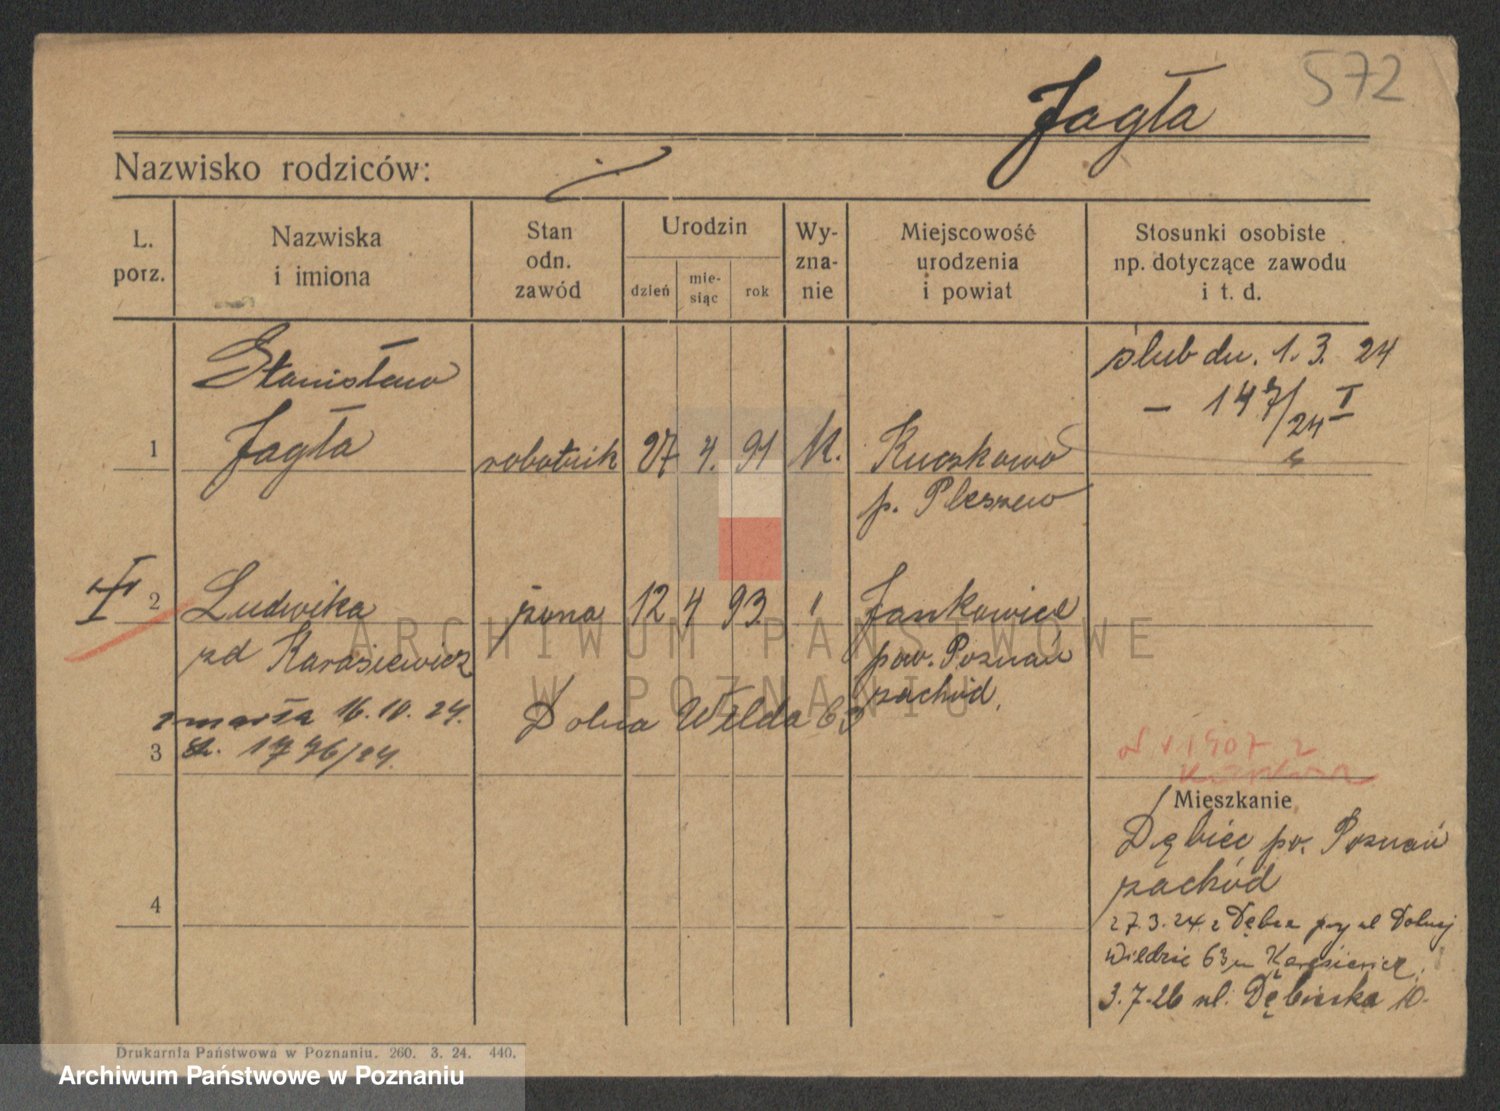 572
Jagła
Nazwisko rodziców:
L. porz.
Nazwiska i imiona
Stan odn. zawód
Urodzin
dzień
mie-siąc
rok
Wy-zna-nie
Miejscowość urodzenia i powiat
Stosunki osobiste np. dotyczące zawodu i t. d.
Stanisław
Jagła
1
robotnik 27 4. 91 k. Kuczkowo
p. Pleszew
ślub dn. 1. 3. 24
- 147/24 I
2
Ludwika
żona 12 4 93 Jankowice
zd Karasiewicz
pow. Poznań
zachód.
zmarła 16.10.24.
Dolna Wilda 63
3
1776/24.
1907
Mieszkanie
Dębiec pw. Poznań
zachód
4
27.3.24 z Dębca przy ul Dolnej
Wildzie 63 Karasiewicz
3.7.26 ul. Dębińska 10.
Drukarnia Państwowa w Poznaniu. 260. 3. 24. 440.
ARCHIWUM PAŃSTWOWE
W POZNANIU
Archiwum Państwowe w Poznaniu